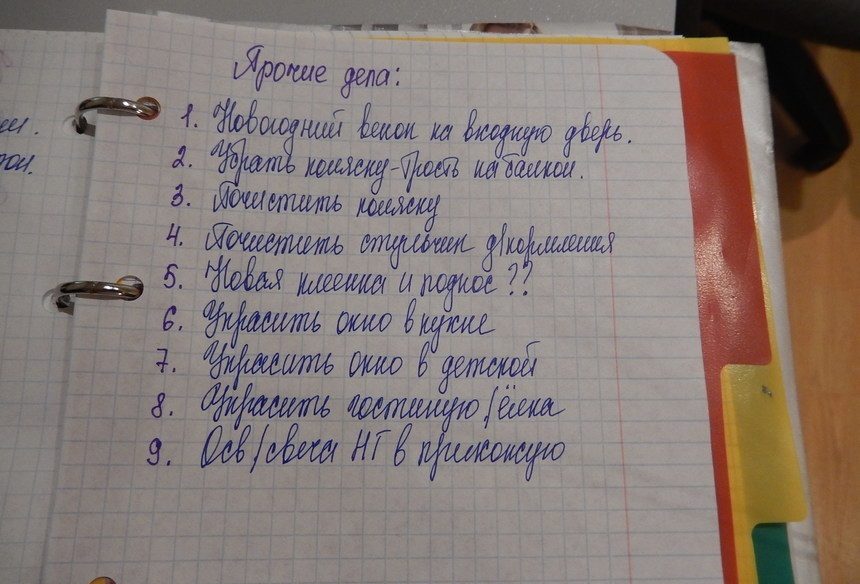 ии.
тои.
Прочие дела:
1. Новогодний венок на входную дверь.
2. Убрать коляску-трость на балкон.
3. Почистить коляску
4. Почистить стульчик д/кормления
5. Новая клеенка и поднос??
6. Украсить окно в кухне
7. Украсить окно в детской
8. Украсить гостиную/ёлка
9. Осв/свеча НГ в прихожую